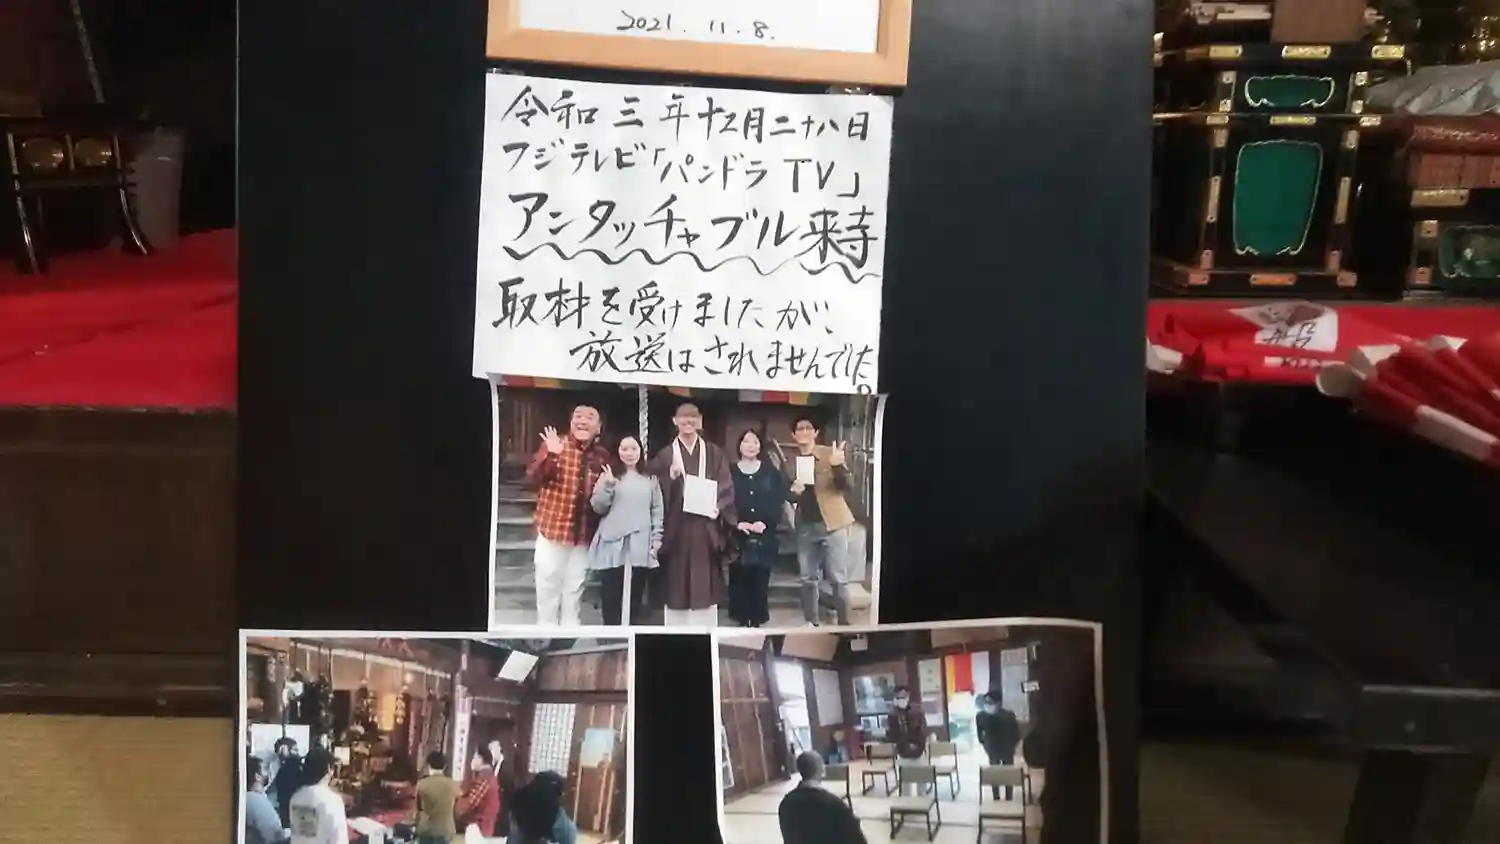 2021. 11. 8.
令和三年十二月二十八日
フジテレビ「パンドラTV」
アンタッチャブル来寺
取材を受けましたが、
放送はされませんでした。